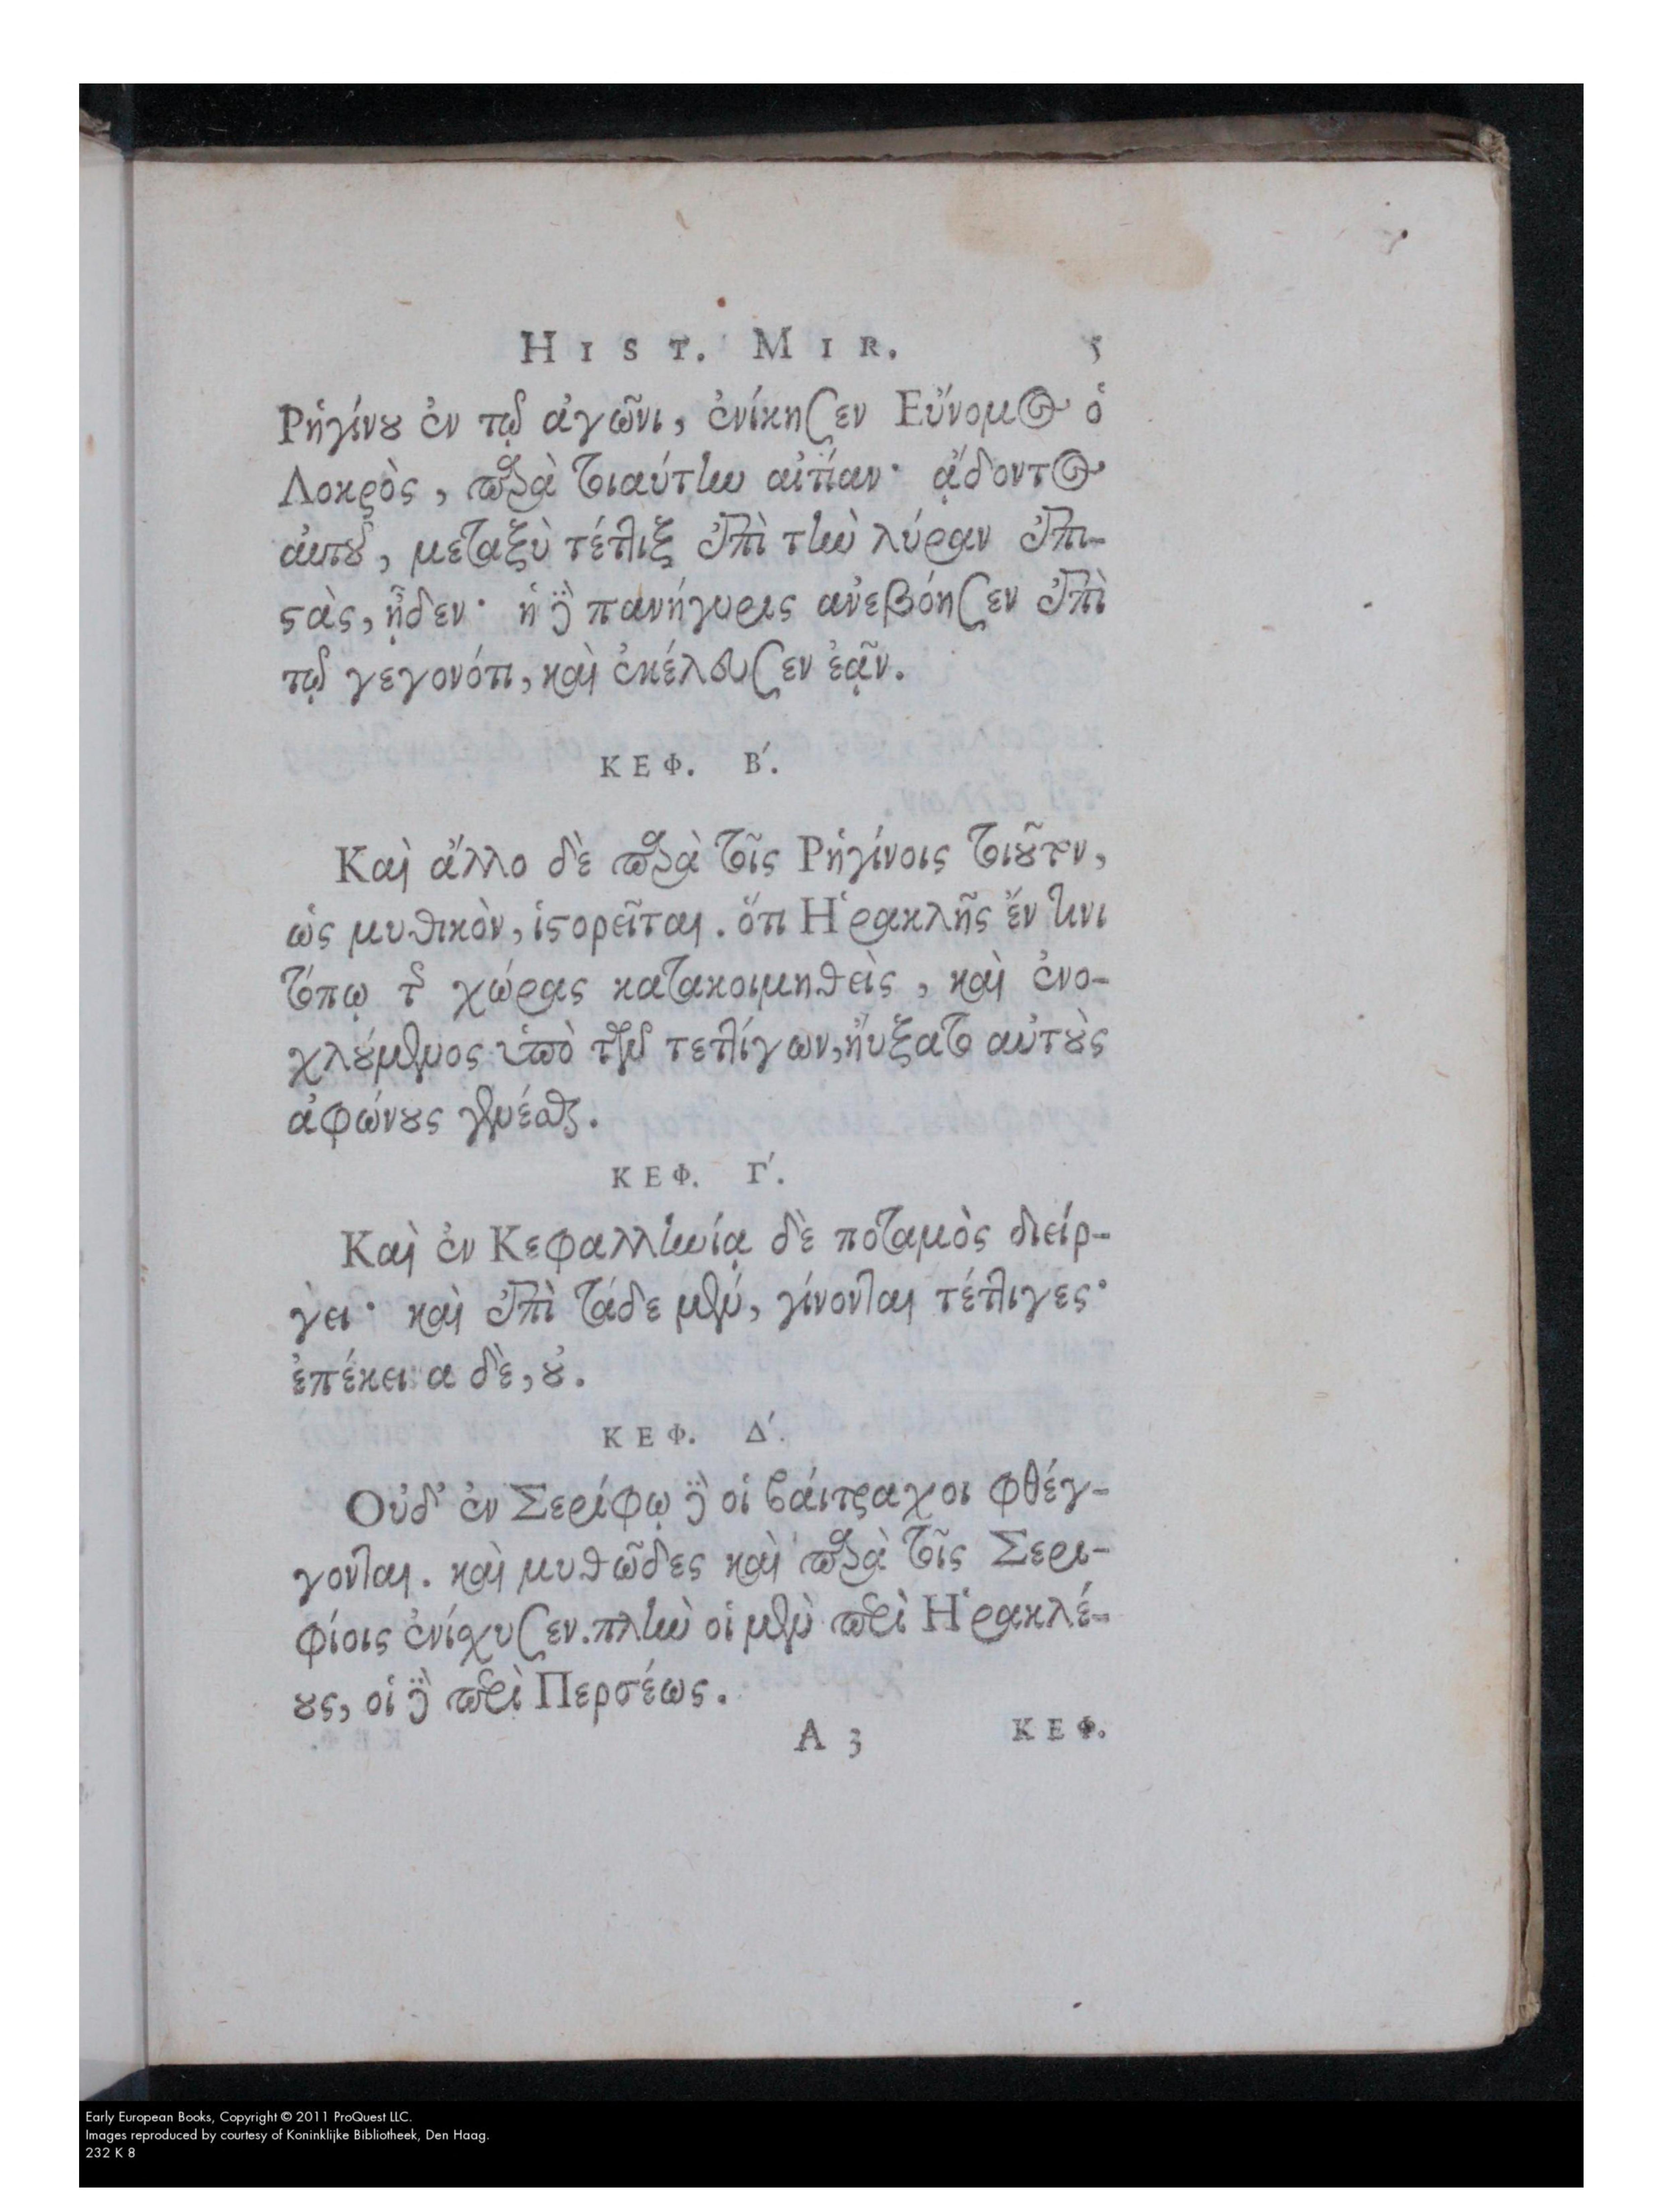 HIST. MIR. 5
Ρηγίνου ἐν τῷ ἀγῶνι, ἐνίκησεν Εὔνομος ὁ
Λοκρὸς, παρὰ τοιαύτην αἰτίαν· ᾄδοντος
αὐτοῦ, μεταξὺ τέττιξ ἐπὶ τὴν λύραν ἐπι-
στὰς, ᾖδεν· ἡ δὲ πανήγυρις ἀνεβόησεν ἐπὶ
τῷ γεγονότι, καὶ ἐκέλευσεν ἐᾷν.
ΚΕΦ. Β΄.
Καὶ ἄλλο δὲ παρὰ τοῖς Ρηγίνοις τοιοῦτον,
ὡς μυθικὸν, ἱστορεῖται. ὅτι Ἡρακλῆς ἔν τινι
τόπῳ τῆς χώρας κατακοιμηθεὶς, καὶ ἐνο-
χλούμενος ὑπὸ τῶν τεττίγων, ηὔξατο αὐτοὺς
ἀφώνους γενέσθαι.
ΚΕΦ. Γ΄.
Καὶ ἐν Κεφαλληνίᾳ δὲ ποταμὸς διείρ-
γει· καὶ ἐπὶ τάδε μὲν, γίνονται τέττιγες·
ἐπέκεινα δὲ, οὐ.
ΚΕΦ. Δ΄.
Οὐδ' ἐν Σερίφῳ δὲ οἱ βάτραχοι φθέγ-
γονται. καὶ μυθῶδες καὶ παρὰ τοῖς Σερι-
φίοις ἐνίσχυσεν. πλὴν οἱ μὲν περὶ Ἡρακλέ-
ους, οἱ δὲ περὶ Περσέως.
A 3 ΚΕΦ.
Early European Books, Copyright © 2011 ProQuest LLC.
Images reproduced by courtesy of Koninklijke Bibliotheek, Den Haag.
232 K 8